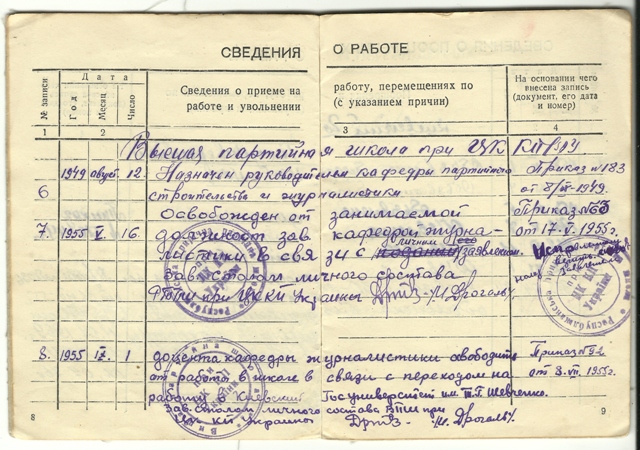 СВЕДЕНИЯ О РАБОТЕ
№ записи
Дата
Год
Месяц
Число
Сведения о приеме на работу, перемещениях по
работе и увольнении (с указанием причин)
На основании чего
внесена запись
(документ, его дата
и номер)
1 2 3 4
Высшая партийная школа при ЦК КП(б)У
6 1949 август. 12. Назначен руководителем кафедры партийного Приказ №183
строительства и журналистики
Освобожден от занимаемой Приказ №63
7. 1955 V. 16. должност зав кафедрой журна- от 17-V-1955г.
листики в связи с личным заявлением.
Зав. столом личного состава
при ЦК КП Украины
8. 1955 IX. 1 доцента кафедры журналистики освободить Приказ №92
от работы в школе в связи с переходом на от 3.VII.1955г.
работу в Киевский Госуниверситет им. Т.Г. Шевченко.
Зав. столом личного состава ВПШ при
ЦК КП Украины
8 9